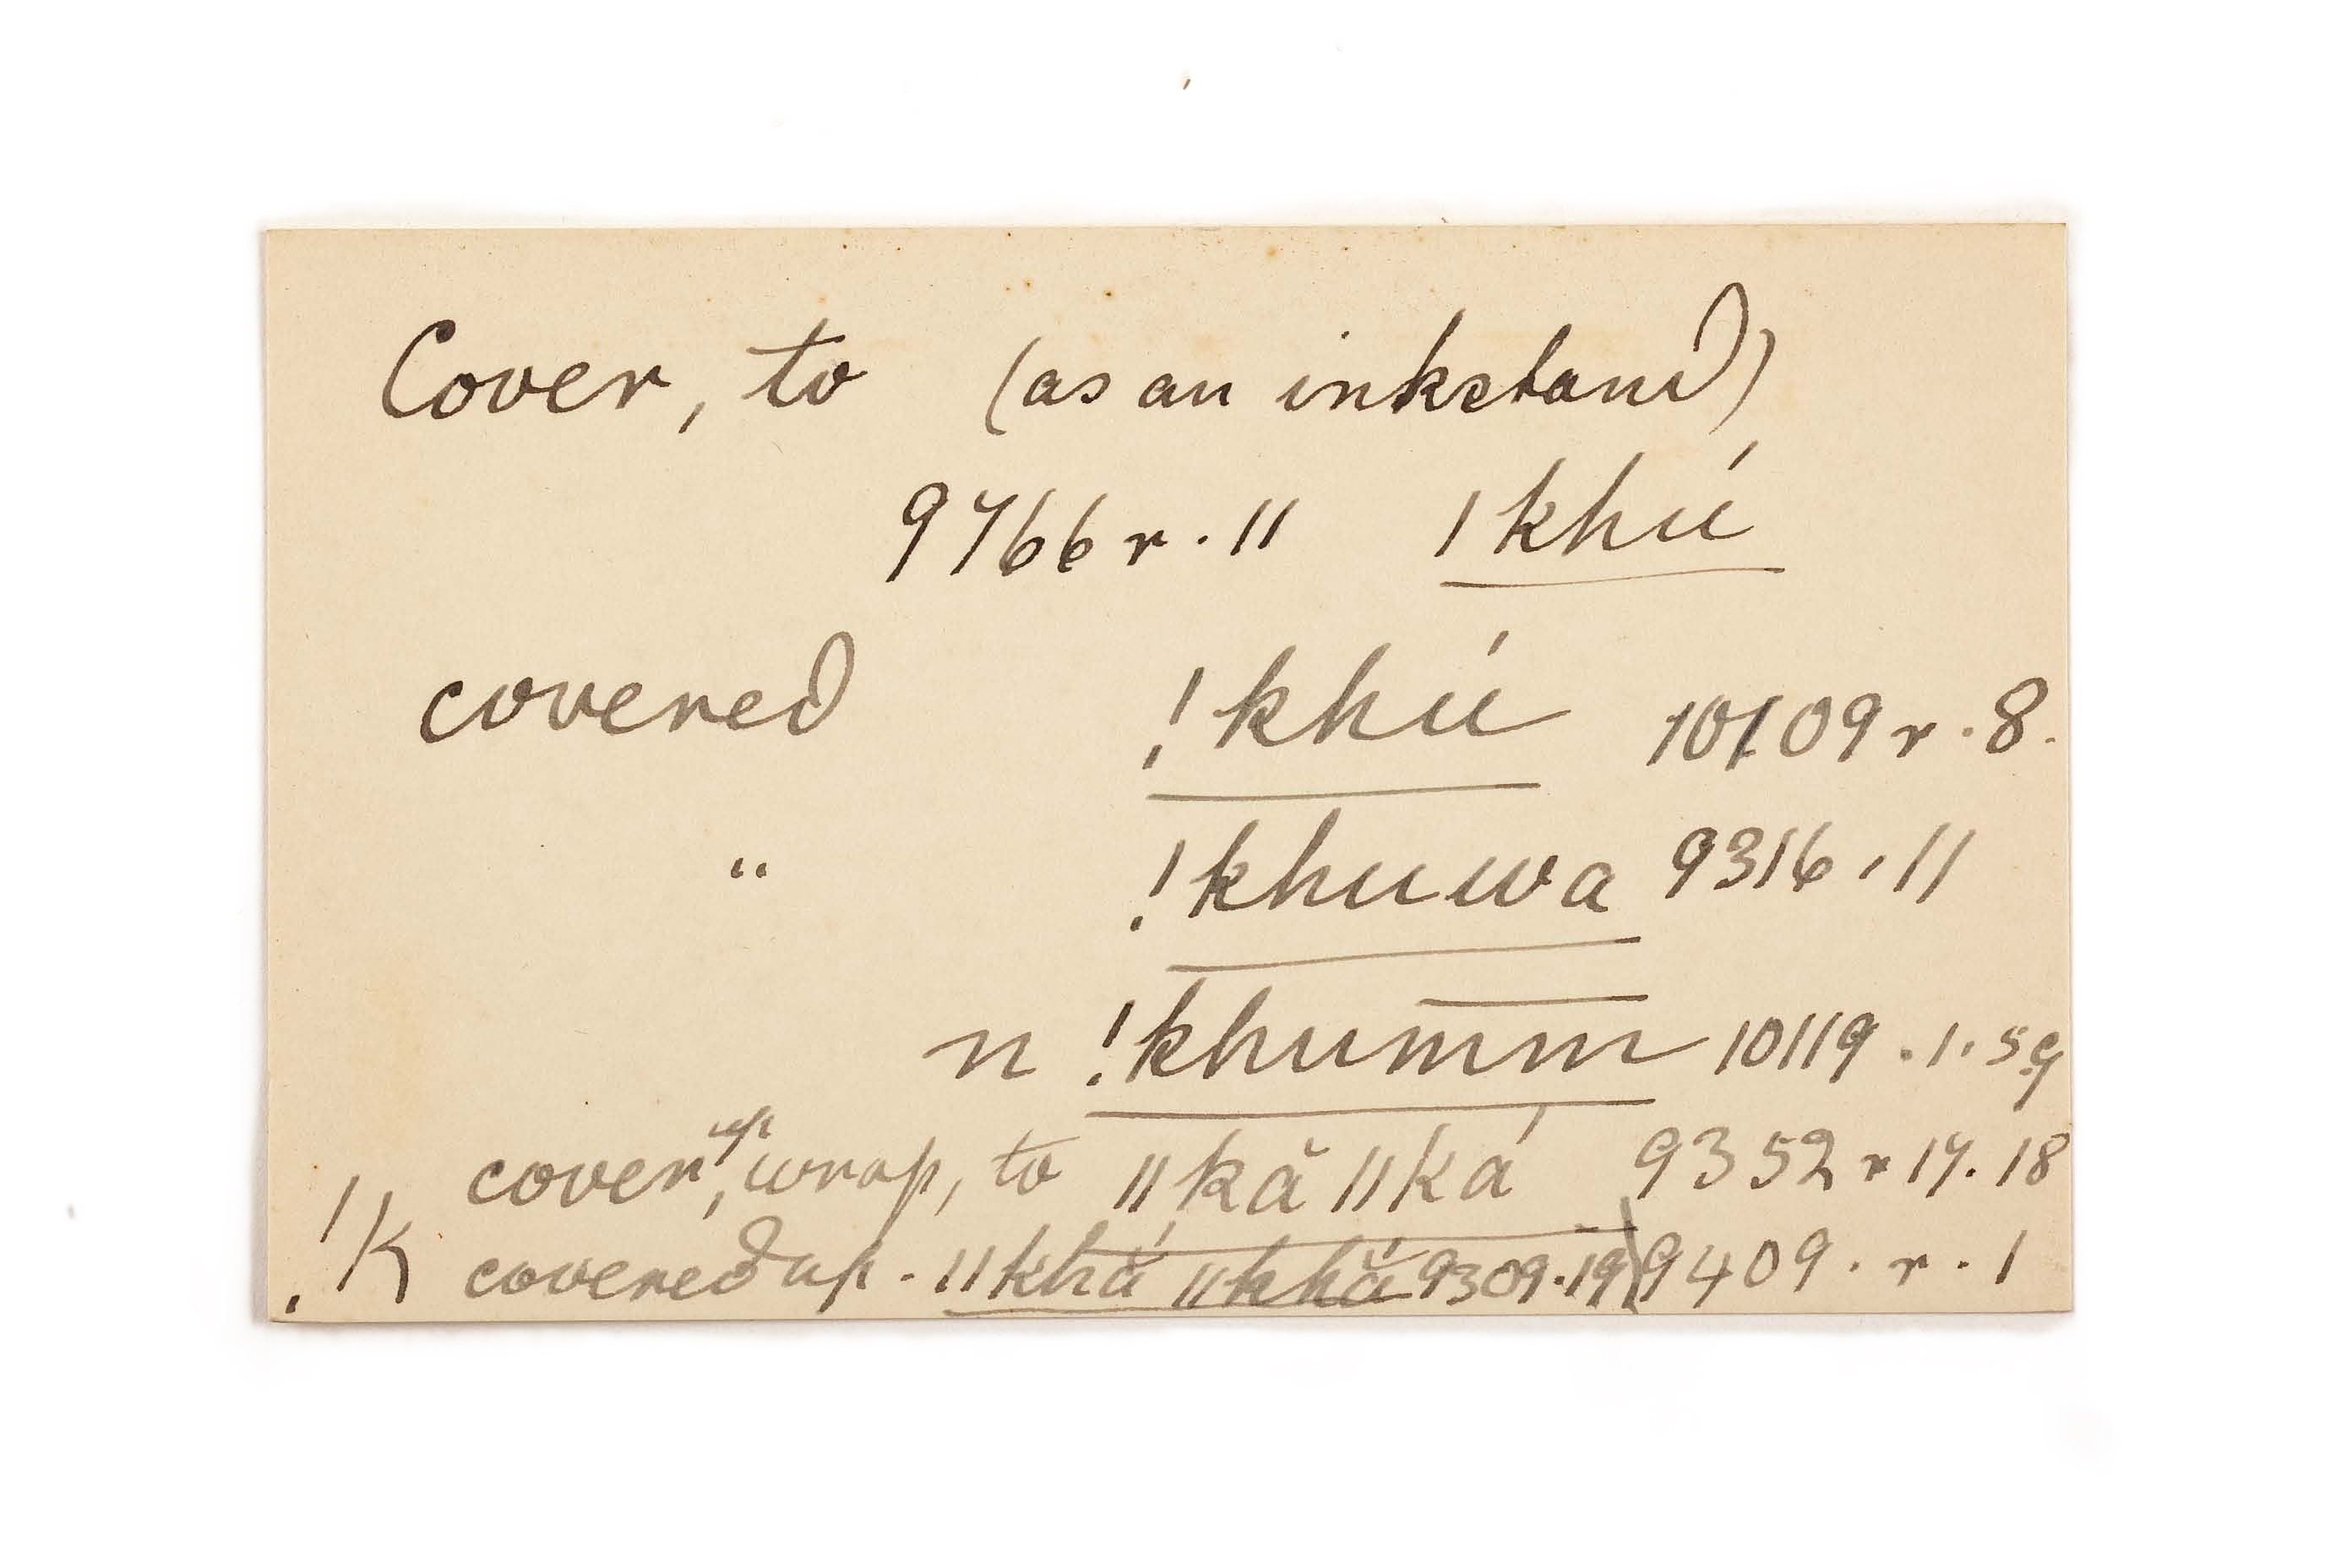 Cover, to (as an inkstand)
9766 r. 11 |khú
covered !khú 10109 r. 8.
" !khuwa 9316. 11
n !khumm̅ 10119. 1. sq
cover up, wrap, to ||kă ||ká 9352 r 17. 18
!K covered up. ||khắ ||khắ 9309. 19 9409. r. 1